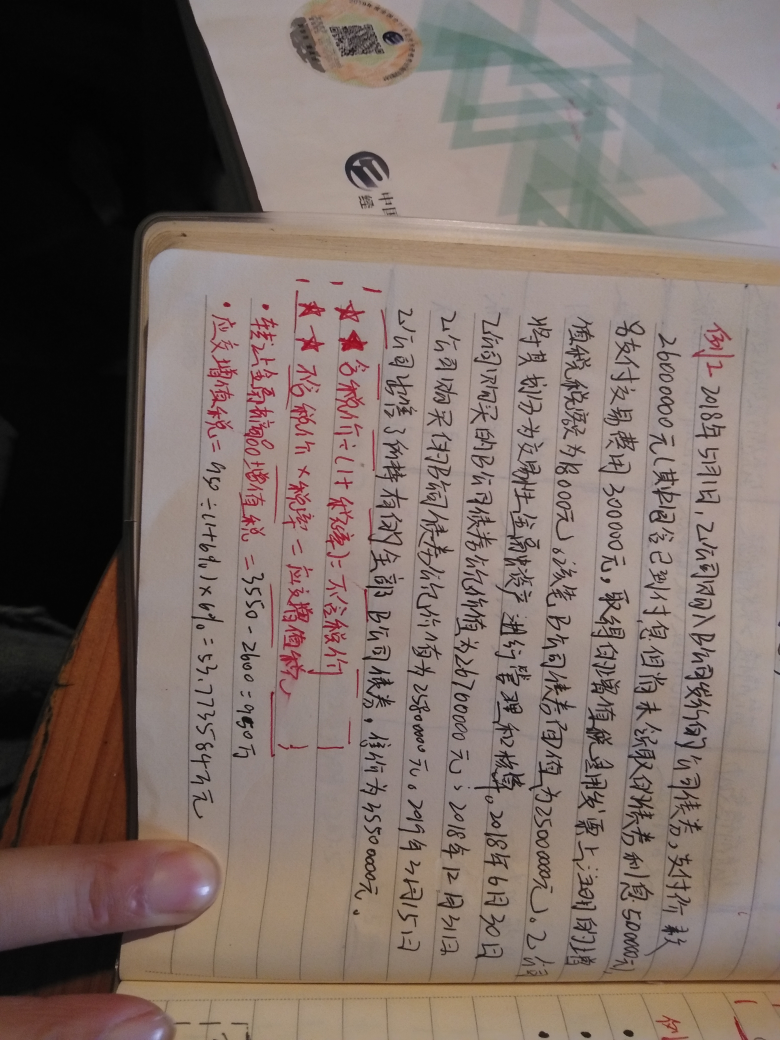 例2 2018年5月1日,乙公司购入B公司发行的公司债券,支付价款
26000000元(其中包含已到付息但尚未领取的债券利息500000元)
另支付交易费用300000元,取得的增值税专用发票上注明的增
值税税额为18000元,该笔B公司债券面值为25000000元。乙公司
将其划分为交易性金融资产进行管理和核算。2018年6月30日
乙公司购买的B公司债券公允价值为26700000元;2018年12月31日
乙公司购买的B公司债券公允价值为25800000元。2019年2月15日
乙公司出售了所持有的全部B公司债券,售价为35500000元。
★★含税价÷(1+税率)=不含税价
★★不含税价×税率=应交增值税
·转让金融商品增值税=3550-2600=950万
·应交增值税=950÷(1+6%)×6%=53.773584万元
中国
经
例